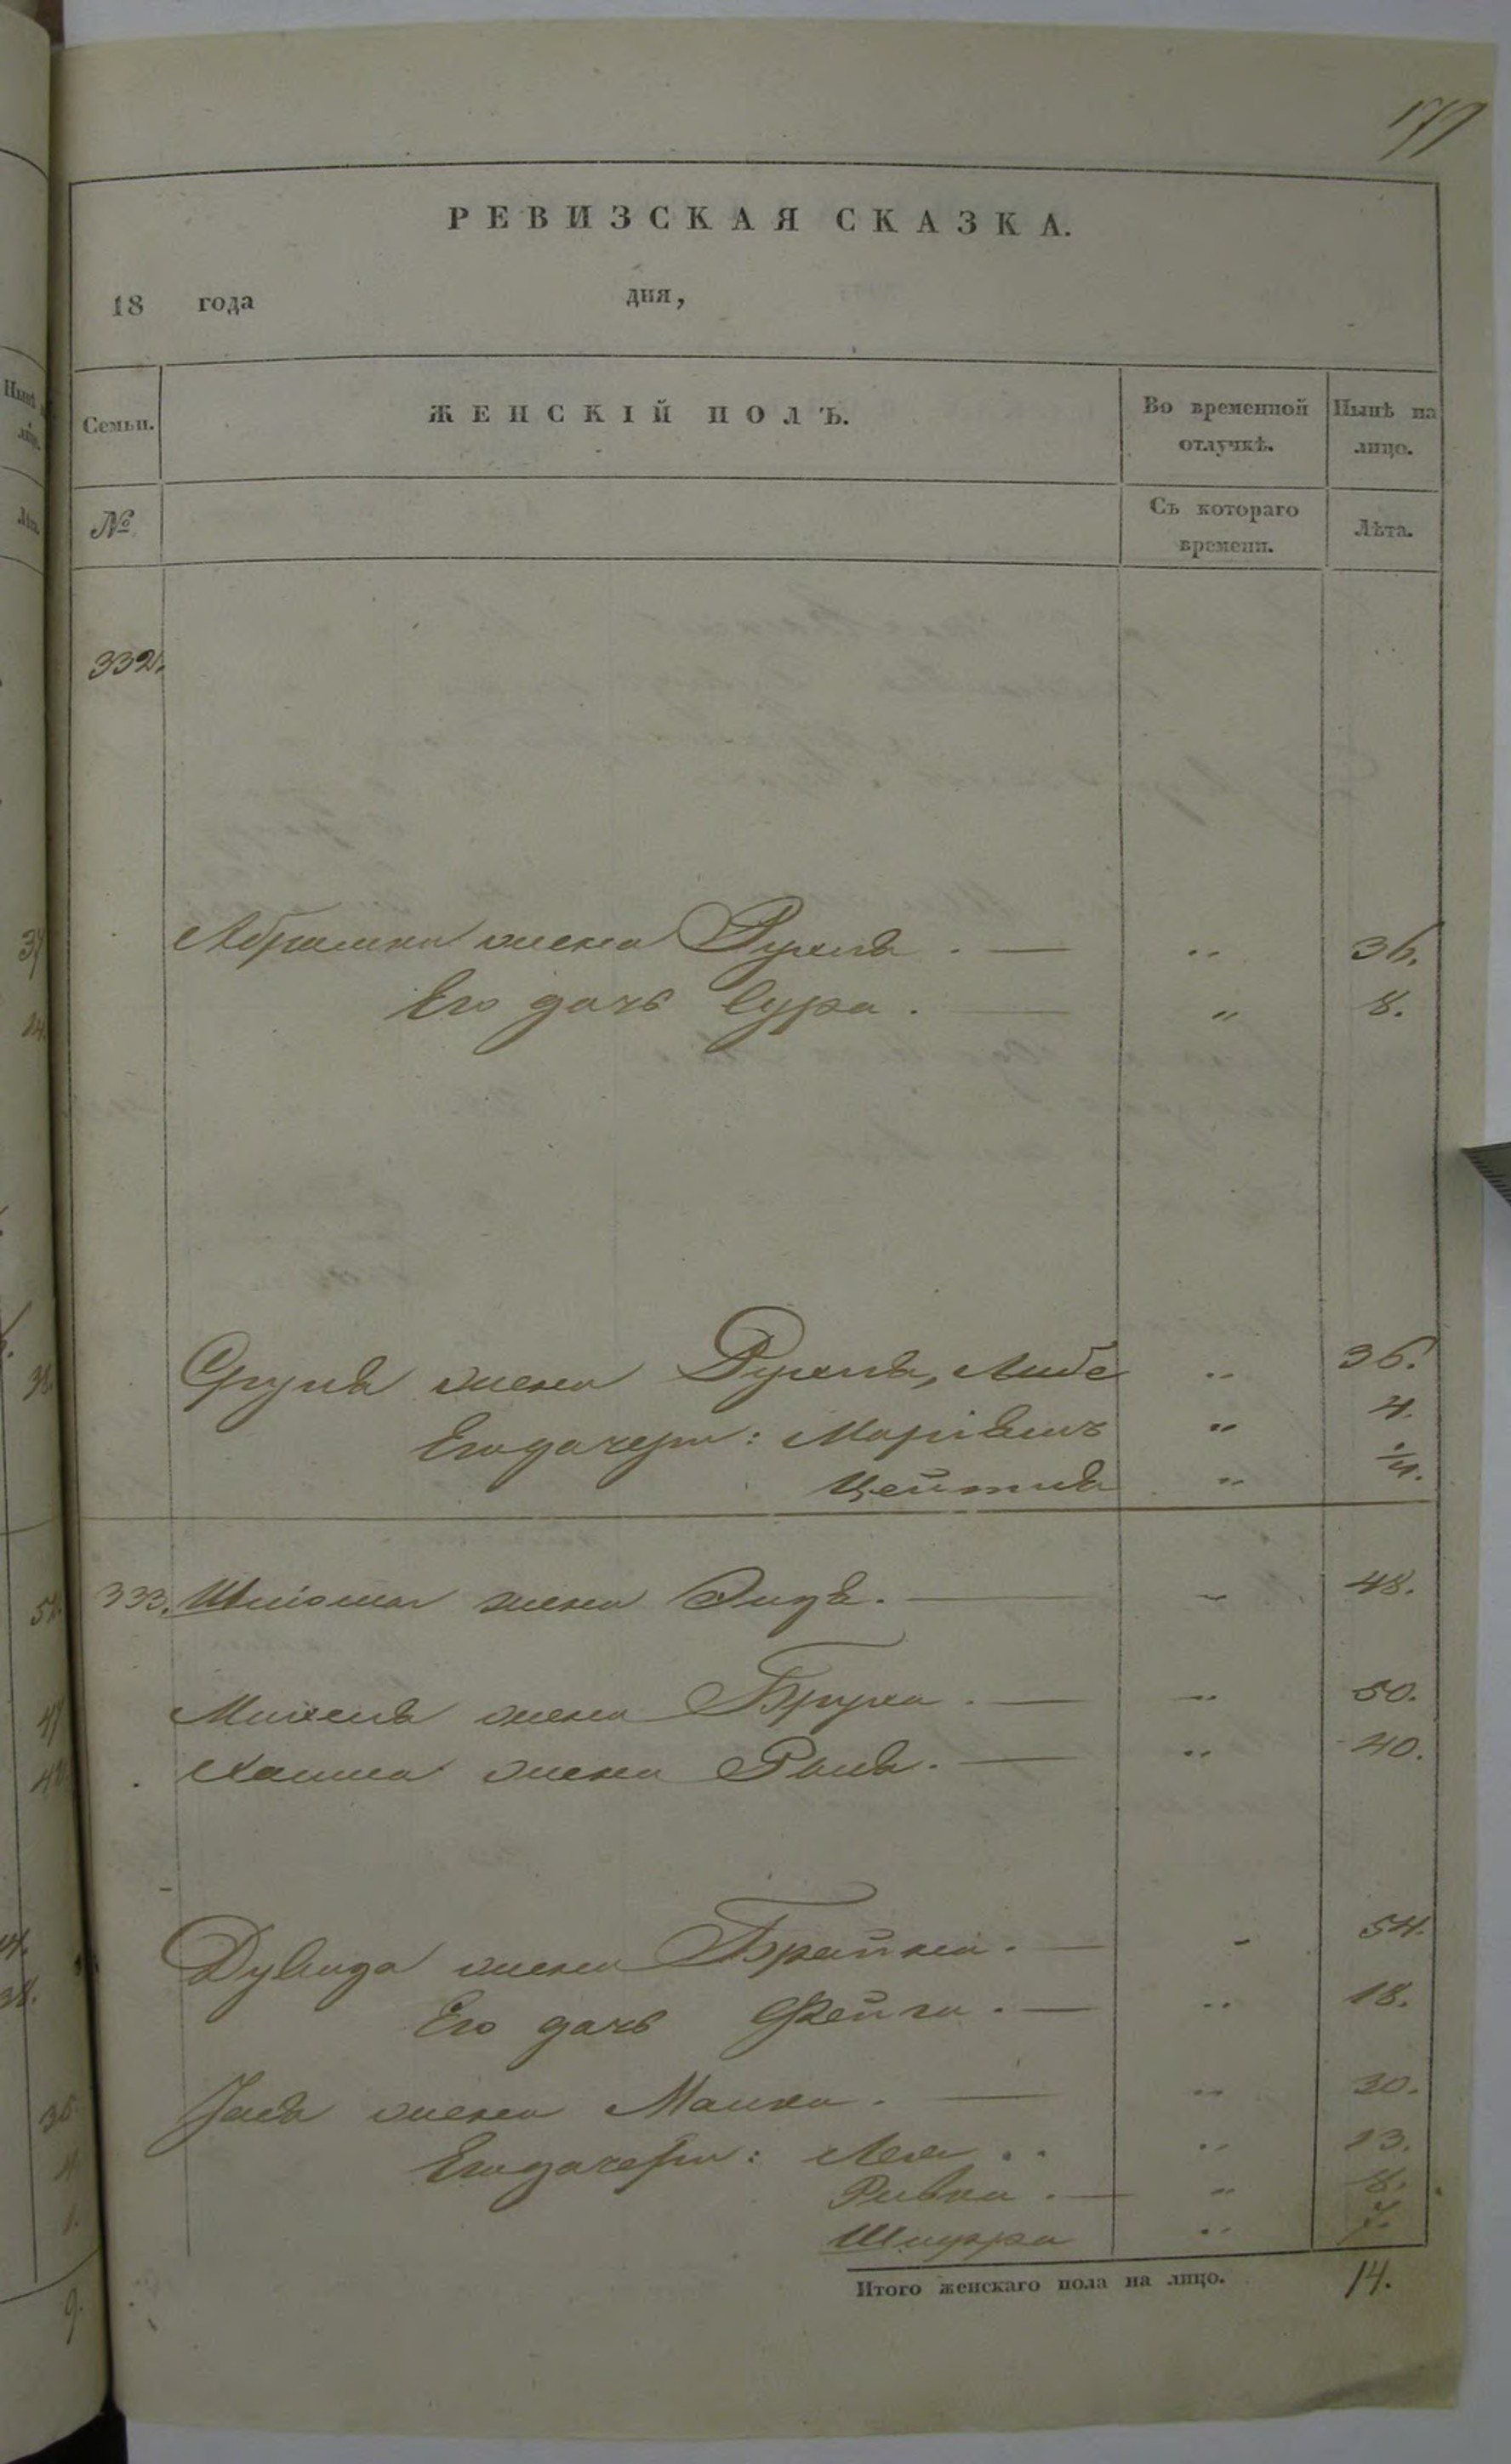 177
РЕВИЗСКАЯ СКАЗКА.
18 года дня,
Семьи. ЖЕНСКІЙ ПОЛЪ. Во временной отлучкѣ. Нынѣ на лицо.
№ Съ котораго времени. Лѣта.
332.
Абрамки жена Рухля . — „ 36.
Его дочь Сура . — „ 8.
Сруля жена Рухля, Либе „ 36.
Его дочери: Маріѣмъ „ 4.
Цейтля „ 1/4.
333. Шліома жена Эидя. — „ 48.
Михеля жена Бруха . — „ 50.
Хаима жена Рыв. — „ 40.
Дувида жена Брайна . — „ 54.
Его дочь Фейга . — „ 18.
жена Малка . — „ 30.
Его дочери: Лея . . „ 13.
Ривка . — „ 8.
Шифра „ 7.
Итого женскаго пола на лицо. 14.